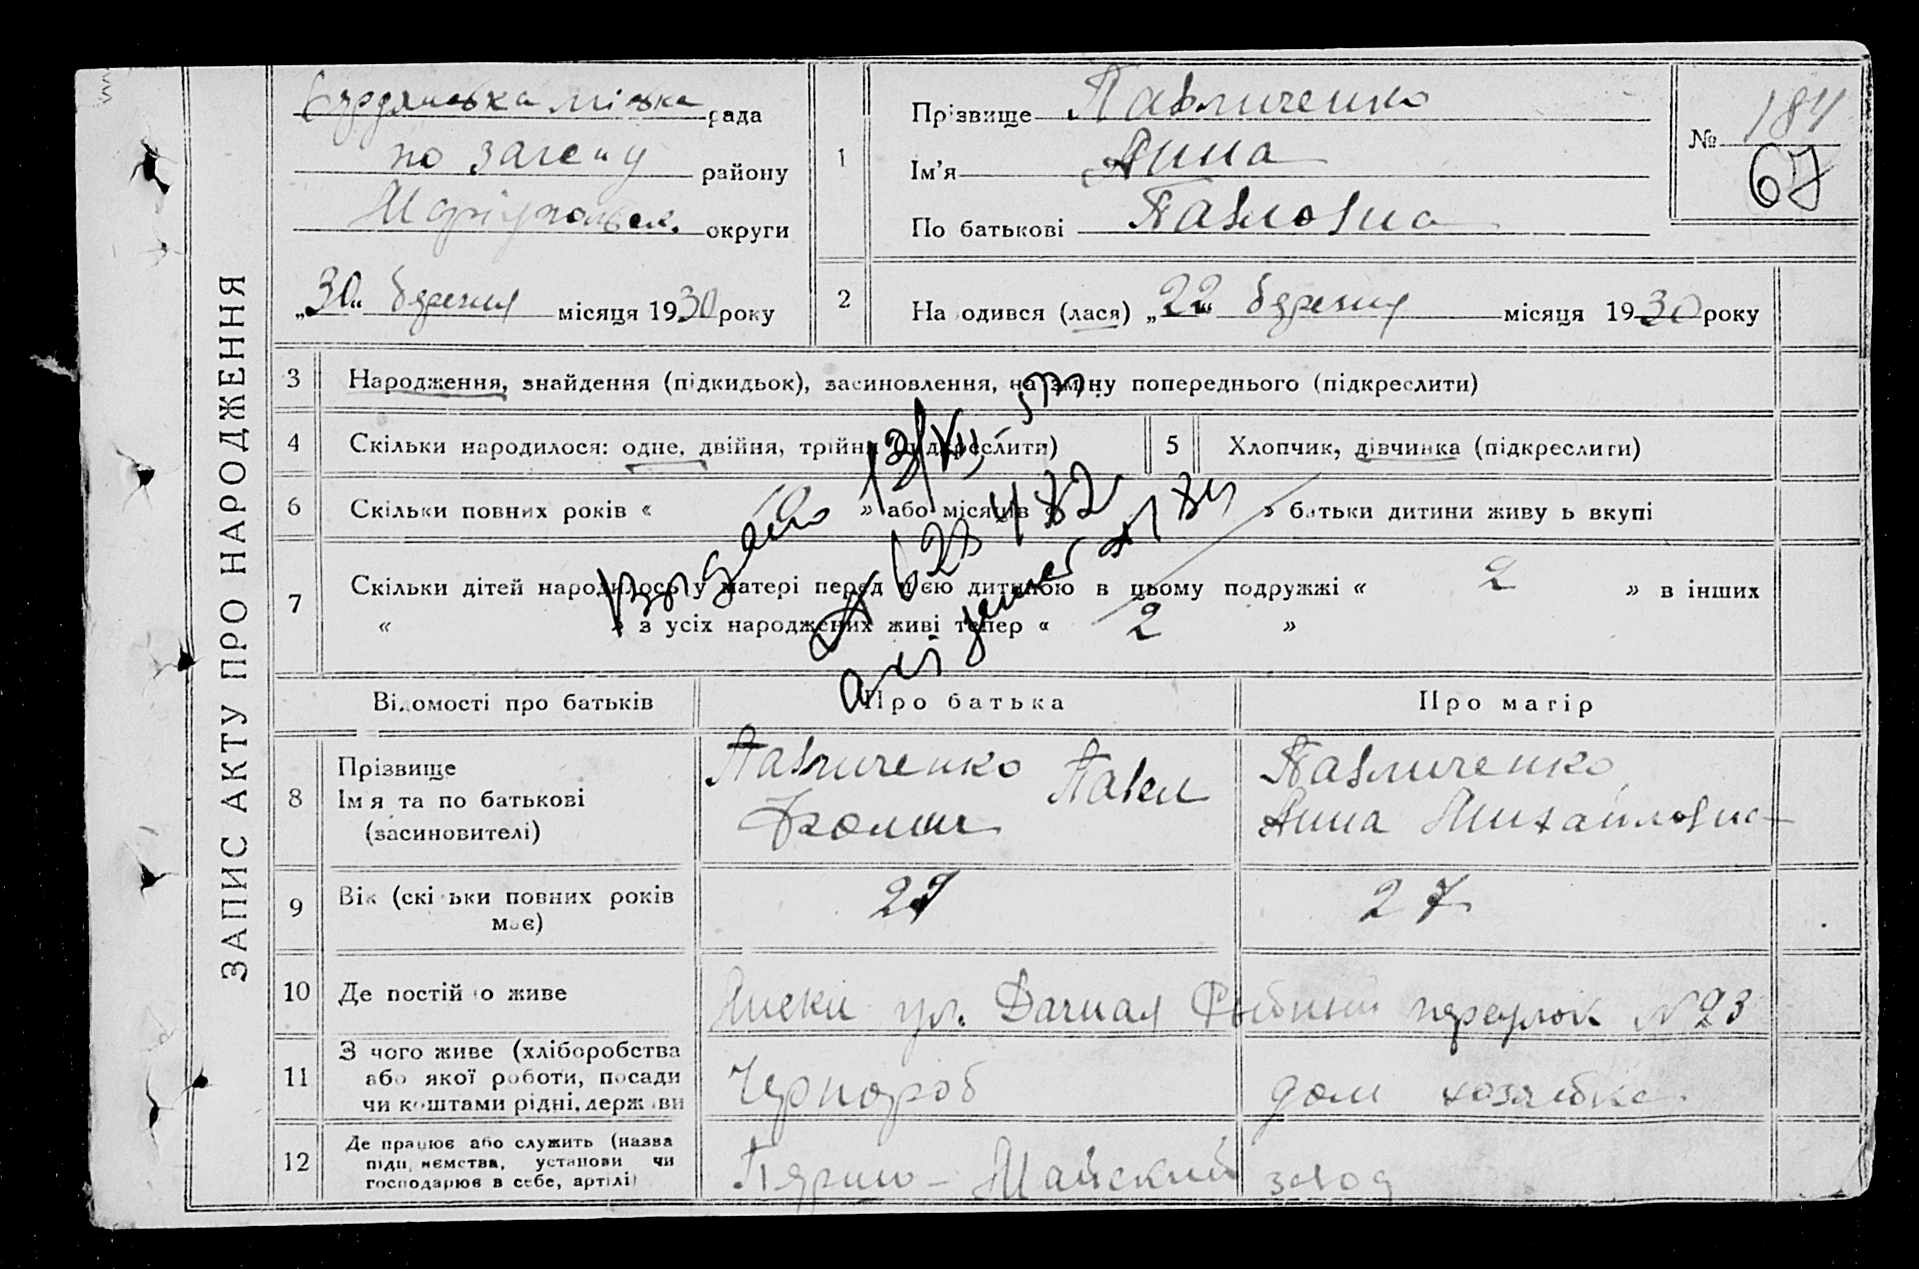 ЗАПИС АКТУ ПРО НАРОДЖЕННЯ
Бердянська міська рада
по загсу району
Маріупольск. округи
„30“ березня місяця 1930 року
1
Прізвище Павличенко
Ім'я Анна
По батькові Павловна
№ 184
67
2
Народився (лася) „22“ березня місяця 1930 року
3 Народження, знайдення (підкидьок), засиновлення, на зміну попереднього (підкреслити)
4 Скільки народилося: одне, двійня, трійня (підкреслити)
5 Хлопчик, дівчинка (підкреслити)
6 Скільки повних років « » або місяців « » батьки дитини живуть вкупі
7 Скільки дітей народилось у матері перед цією дитиною в цьому подружжі « 2 » в інших
« » з усіх народжених живі тепер « 2 »
Відомості про батьків
Про батька
Про матір
8 Прізвище
Ім'я та по батькові
(засиновителі)
Павличенко Павел
Павличенко
Анна Михайловна
9 Вік (скільки повних років
має)
27
10 Де постійно живе
ул. Дачная переулок №23
11 З чого живе (хліборобства
або якої роботи, посади
чи коштами рідні, держави
Чернороб
дом хозяйка
12 Де працює або служить (назва
підприємства, установи чи
господарює в себе, артілі)
Первомайский завод